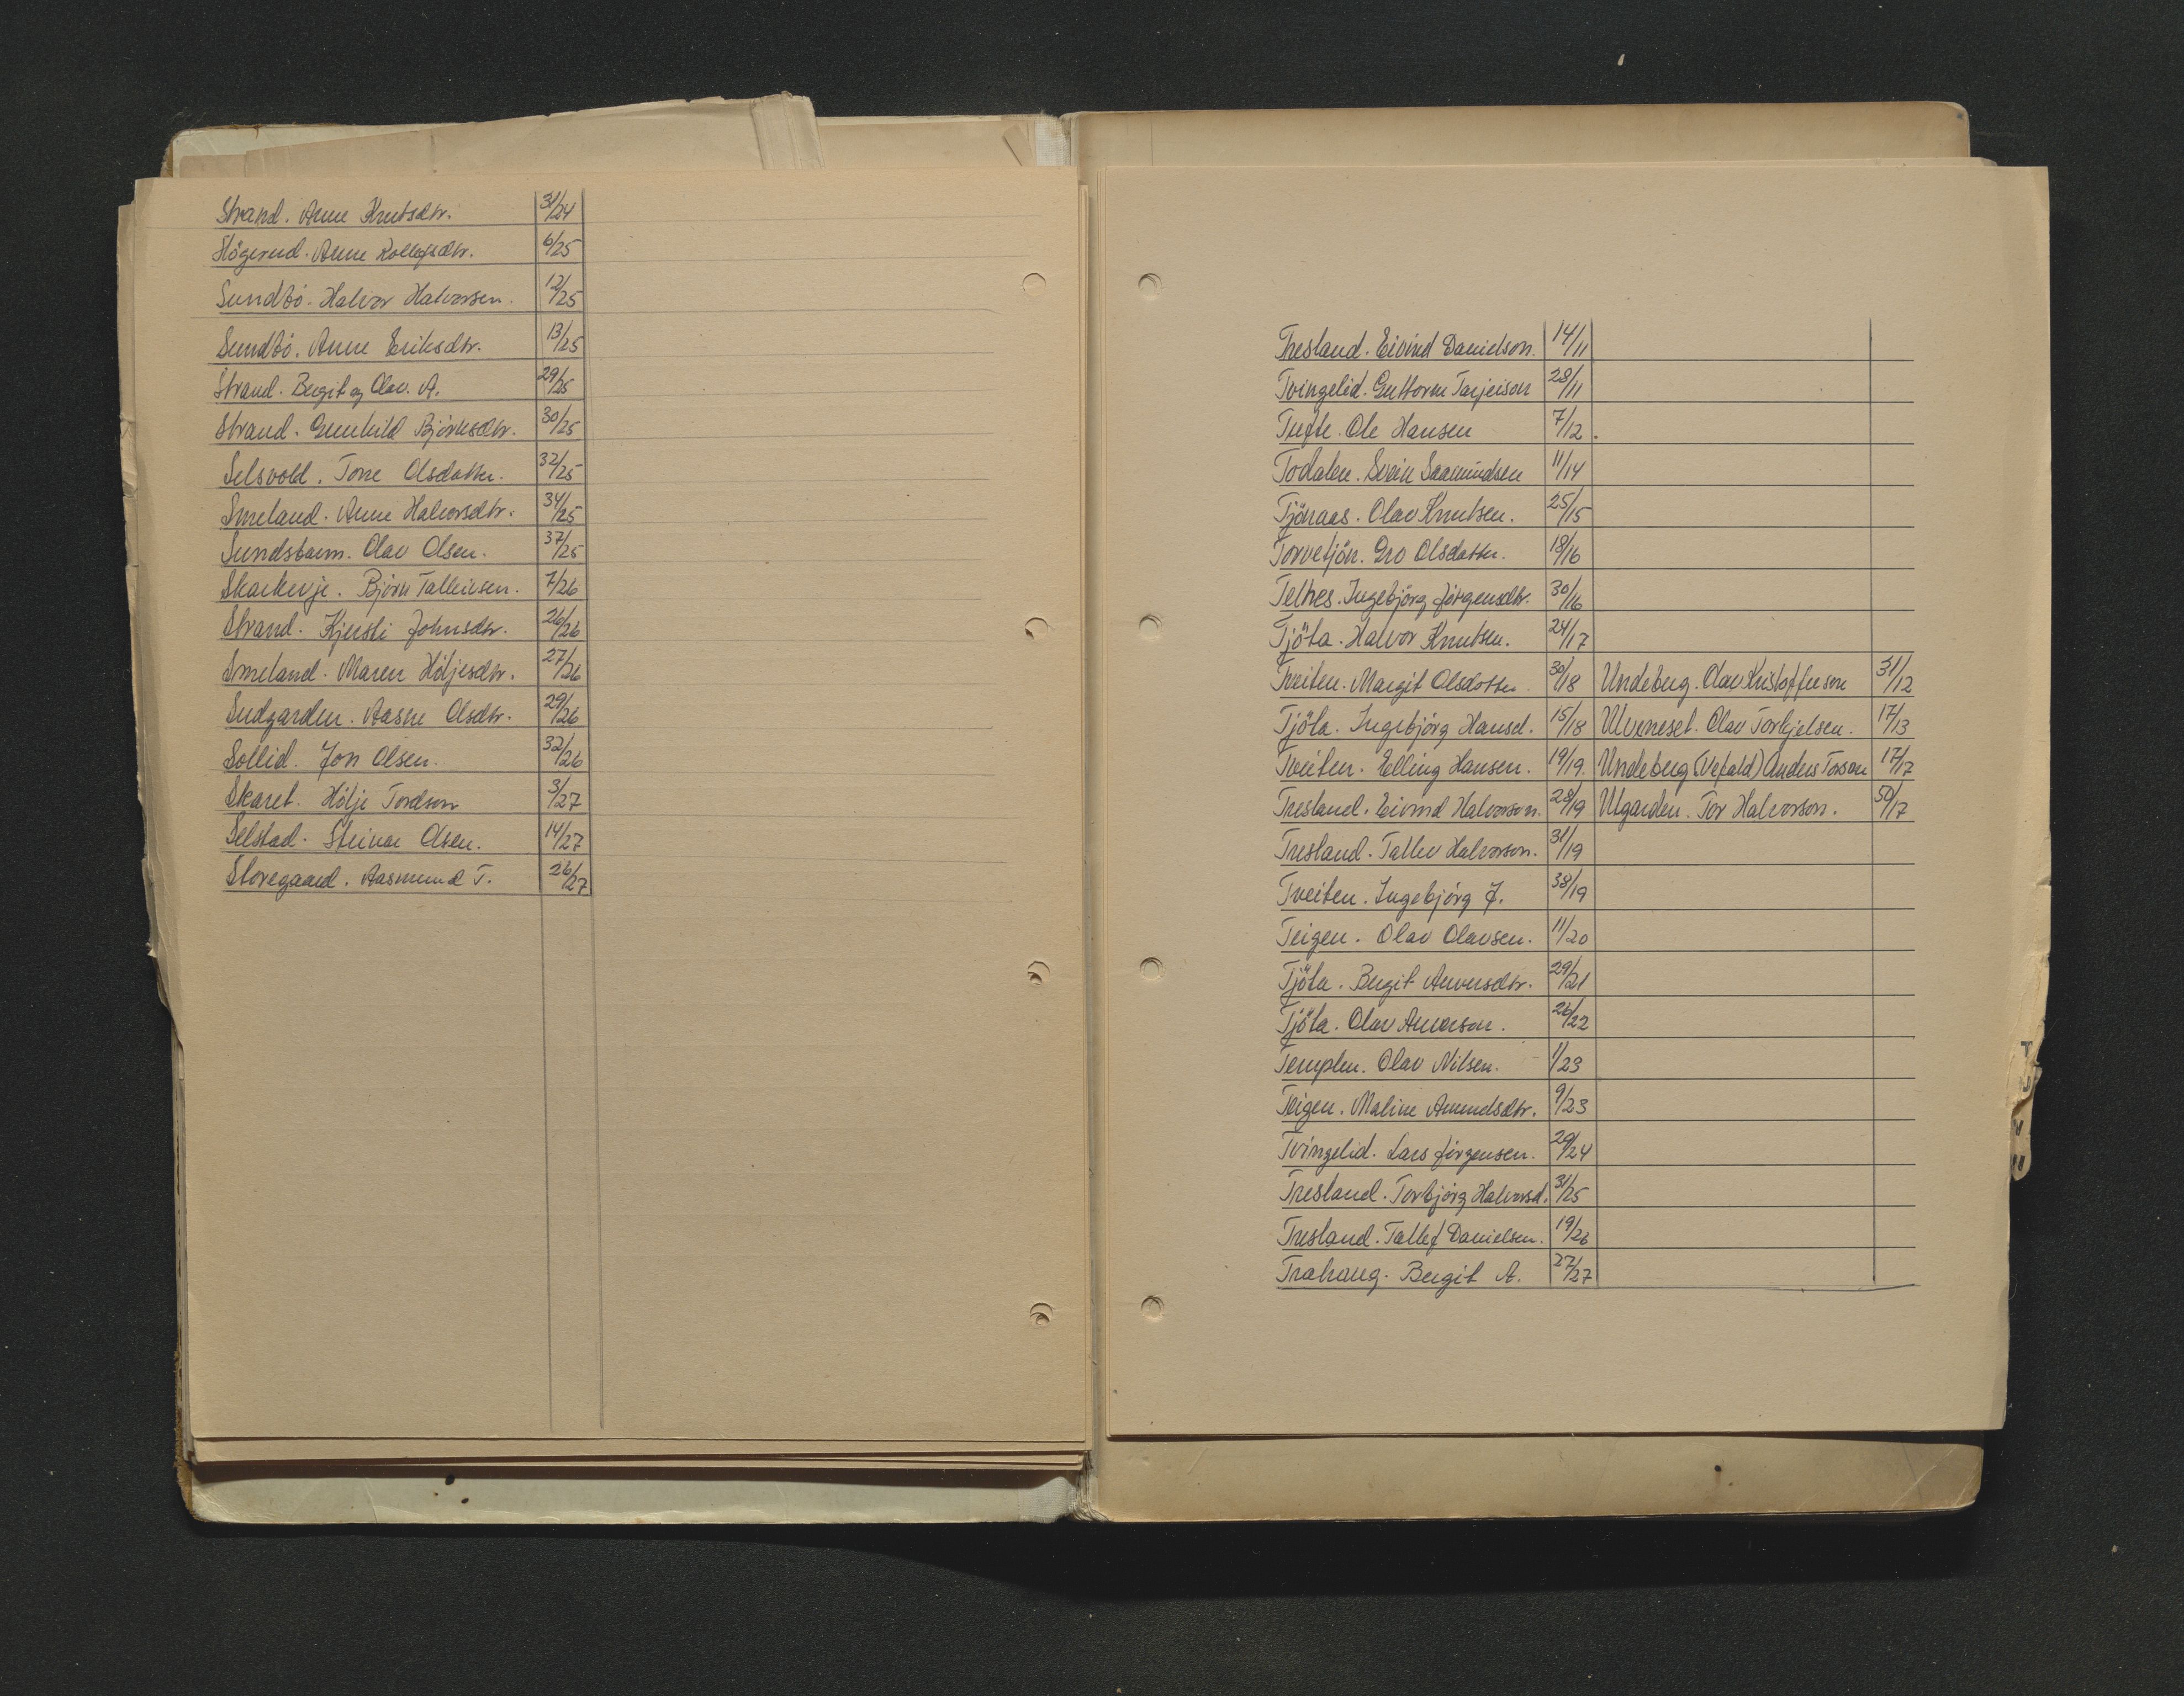 Strand. Anne Knutsdtr. 31/24
Högerud. Anne Rollefsdtr. 6/25
Sundbö. Halvor Halvorsen. 12/25
Sundbö. Anne Eriksdtr. 13/25
Strand. Bergit og Olav. A. 29/25
Strand. Gunhild Björnsdtr. 30/25
Selsvold. Tone Olsdatter. 32/25
Smeland. Anne Halvorsdtr. 34/25
Sundstaum. Olav Olsen. 37/25
Skarkerje. Björn Talleivsen. 7/26
Strand. Kjersti Johnsdtr. 26/26
Smeland. Maren Höljesdtr. 27/26
Sudgarden. Aasne Olsdtr. 29/26
Sollid. Jon Olsen. 32/26
Skaret. Hölje Tordson 3/27
Selstad. Steinar Olsen. 14/27
Storegaard. Aasmund T. 26/27
Tresland. Eivind Danielson. 14/11
Tvingelid. Guttorm Tarjeison 28/11
Tufte. Ole Hansen 7/12.
Todalen. Svein Saamundsen 11/14
Tjönaas. Olav Knutsen. 25/15
Torvetjön. Gro Olsdatter. 18/16
Telnes. Ingebjörg Jörgensdtr. 30/16
Tjöta. Halvor Knutsen. 24/17
Tveiten. Margit Olsdotter 30/18 Undeberg. Olav Kristofferson 31/12
Tjöta. Ingebjörg Hansd. 15/18 Ulveneset. Olav Torkjelsen. 17/13
Tveiten. Elling Hansen. 19/19. Undeberg (Vefald) Anders Torson 17/17
Tresland. Eivind Halvorson. 28/19 Utgarden. Tor Halvorson. 50/17
Tresland. Tallev Halvorson. 31/19
Tveiten. Ingebjörg J. 38/19
Teigen. Olav Olavsen. 11/20
Tjöta. Bergit Anversdtr. 29/21
Tjöta. Olav Anverson. 26/22
Templen. Olav Nilsen. 1/23
Teigen. Maline Amundsdtr. 9/23
Tvingelid. Lars Jörgensen. 29/24
Tresland. Torbjörg Halvorsd. 31/25
Tresland. Tallef Danielsen. 19/26
Trahaug. Bergit A. 27/27